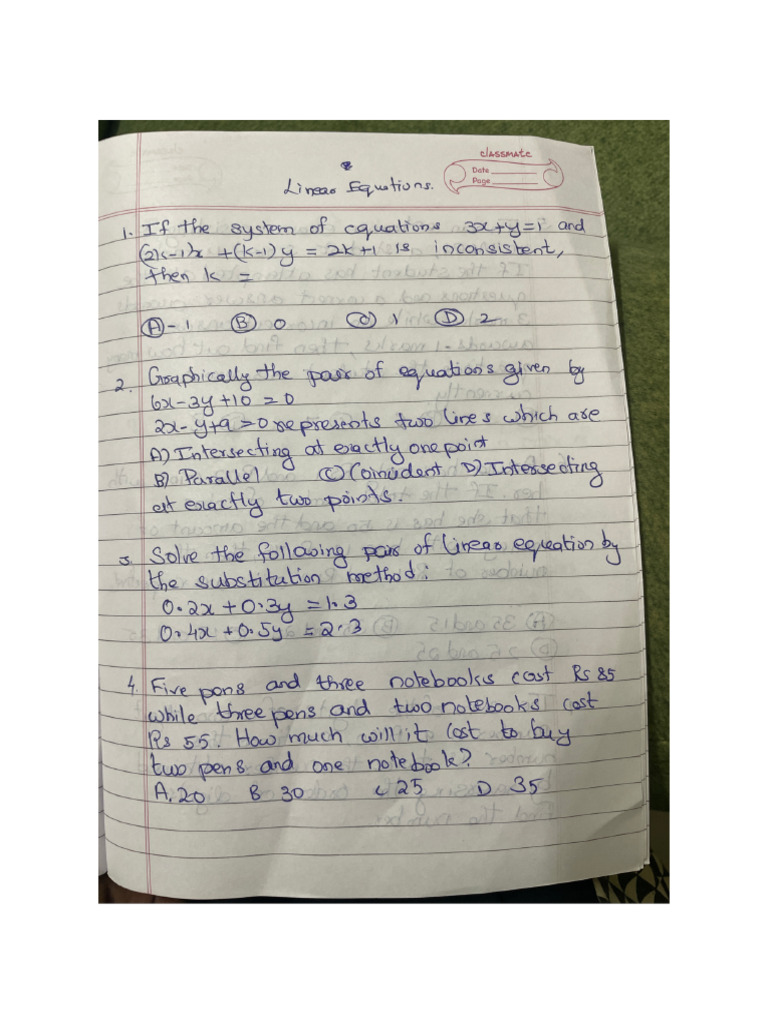 classmate
Date
Page
Linear Equations.
1. If the system of equations 3x+y=1 and
(2k-1)x +(k-1)y = 2k+1 is inconsistent,
then k =
(A) -1 (B) 0 (C) 1 (D) 2
2. Graphically the pair of equations given by
6x-3y+10=0
2x-y+9=0 represents two lines which are
A) Intersecting at exactly one point
B) Parallel (C) Coincident D) Intersecting
at exactly two points.
3. Solve the following pair of linear equation by
the substitution method:
0.2x+0.3y=1.3
0.4x+0.5y=2.3
4. Five pens and three notebooks cost Rs 85
while three pens and two notebooks cost
Rs 55. How much will it cost to buy
two pens and one notebook?
A. 20 B 30 C 25 D 35